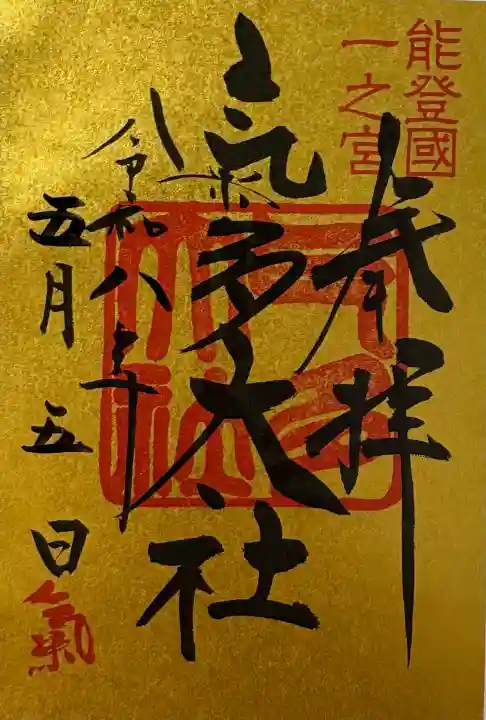 能登國
一之宮
奉拝
氣多大社
令和八年
五月五日
氣